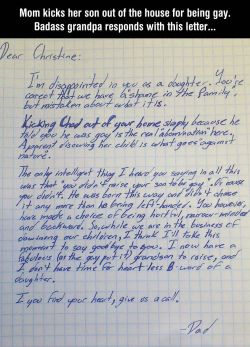 Mom kicks her son out of the house for being gay.
Badass grandpa responds with this letter...
Dear Christine:
I'm disappointed in you as a daughter. You're
correct that we have a "shame in the family",
but mistaken about what it is.
Kicking Chad out of your home simply because he
told you he was gay is the real "abomination" here.
A parent disowning her child is what goes "against
nature".
The only intelligent thing I heard you saying in all this
was that "you didn't raise your son to be gay". Of course
you didn't. He was born this way and didn't choose
it any more than he being left-handed. You however,
have made a choice of being hurtful, narrow-minded
and backward. So, while we are in the business of
disowning our children, I think I'll take this
moment to say goodbye to you. I now have a
fabulous (as the gay put it) grandson to raise, and
I don't have time for heart-less B-word of a
daughter.
If you find your heart, give us a call.
-Dad